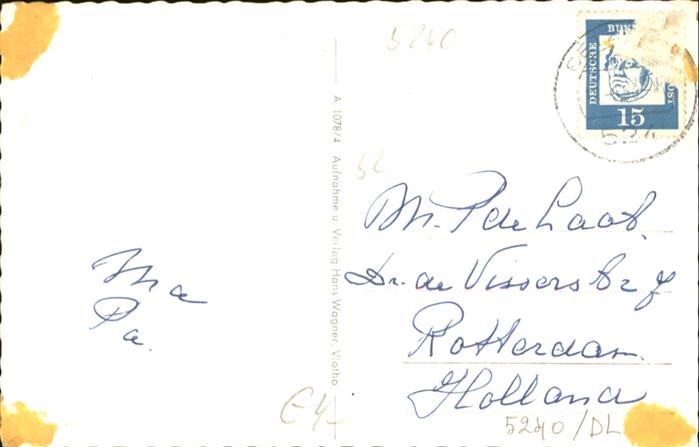 5240
DEUTSCHE
BUN
POST
15
524
A 1078/4 Aufnahme u. Verlag Hans Wagner, Vlotho
52
Ma
Pa.
M. P de Laat.
Dr. de Visserstr 7
Rotterdam.
Holland
€4-
5240/DL